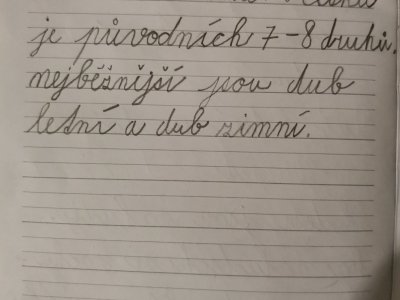 je původních 7-8 druhů.
nejběžnější jsou dub
letní a dub zimní.